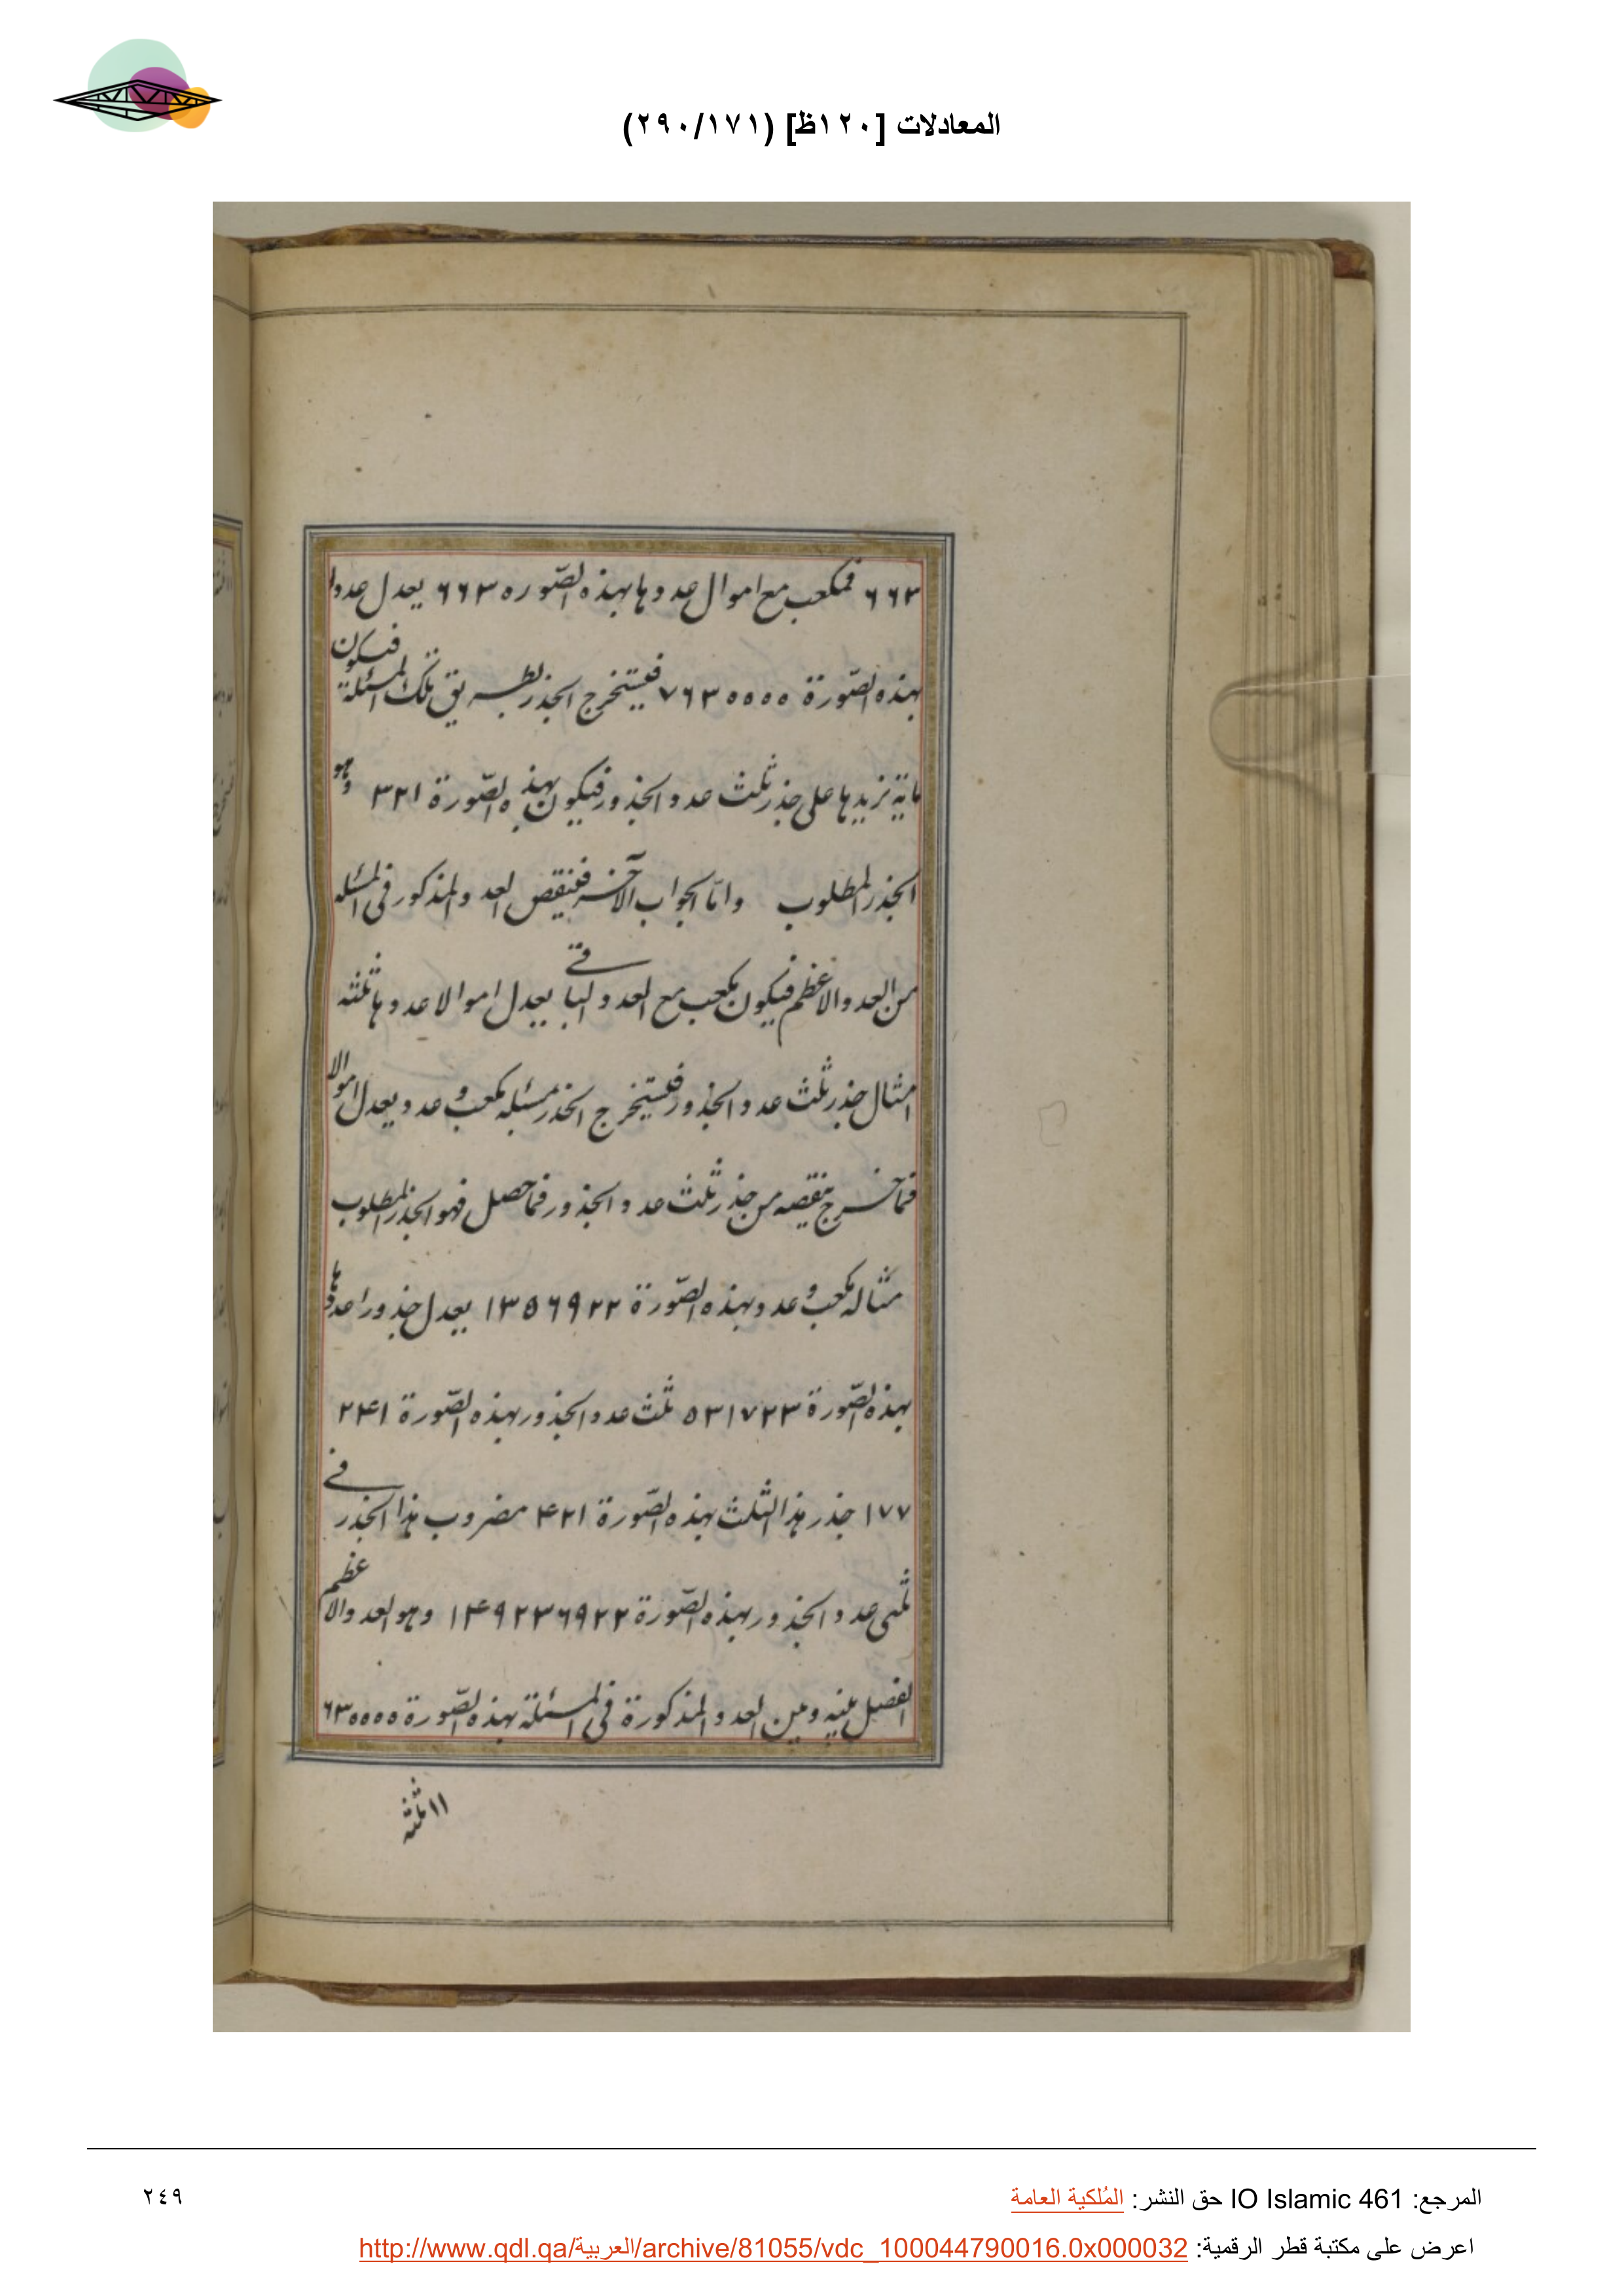 المعادلات [١٢٠ظ] (٢٩٠/١٧١)
٦٦٣ فمكعب مع اموال عددها بهذه الصّوره ٦٦٣ يعدل عددا
بهذه الصّورة ٧٦٣٥٥٥٥ فيستخرج الجذر بطريق تلك المسئلة فيكون
ماية نزيدها على جذر ثلث عدد الجذور فيكون بهذه الصّورة ٣٢١ وهو
الجذر المطلوب وامّا الجواب الآخر فننقص العدد المذكور فى المسئله
من العدد الاعظم فيكون مكعب مع العدد الباقے يعدل اموالا عددها ثلثه
امثال جذر ثلث عدد الجذور فيستخرج الجذر بمسئله مكعب و عدد يعدل اموالا
فما خرج ننقصه من جذر ثلث عدد الجذور فما حصل فهو الجذر المطلوب
مثاله مكعب و عدد بهذه الصّورة ١٣٥٦٩٢٢ يعدل جذورا عددها
بهذه الصّورة ٥٣١٧٢٣ ثلث عدد الجذور بهذه الصّورة ٢۴١
١٧٧ جذر هذا الثلث بهذه الصّورة ۴٢١ مضروب هذا الجذر فے
ثلثى عدد الجذور بهذه الصّورة ١۴٩٢٣٦٩٢٢ وهو العدد الاعظم
الفصل بينه وبين العدد المذكورة فى المسئلة بهذه الصّورة ٦٣٥٥٥٥
١١ ثلثه
المرجع: IO Islamic 461 حق النشر: المُلكية العامة
٢٤٩
اعرض على مكتبة قطر الرقمية: http://www.qdl.qa/العربية/archive/81055/vdc_100044790016.0x000032